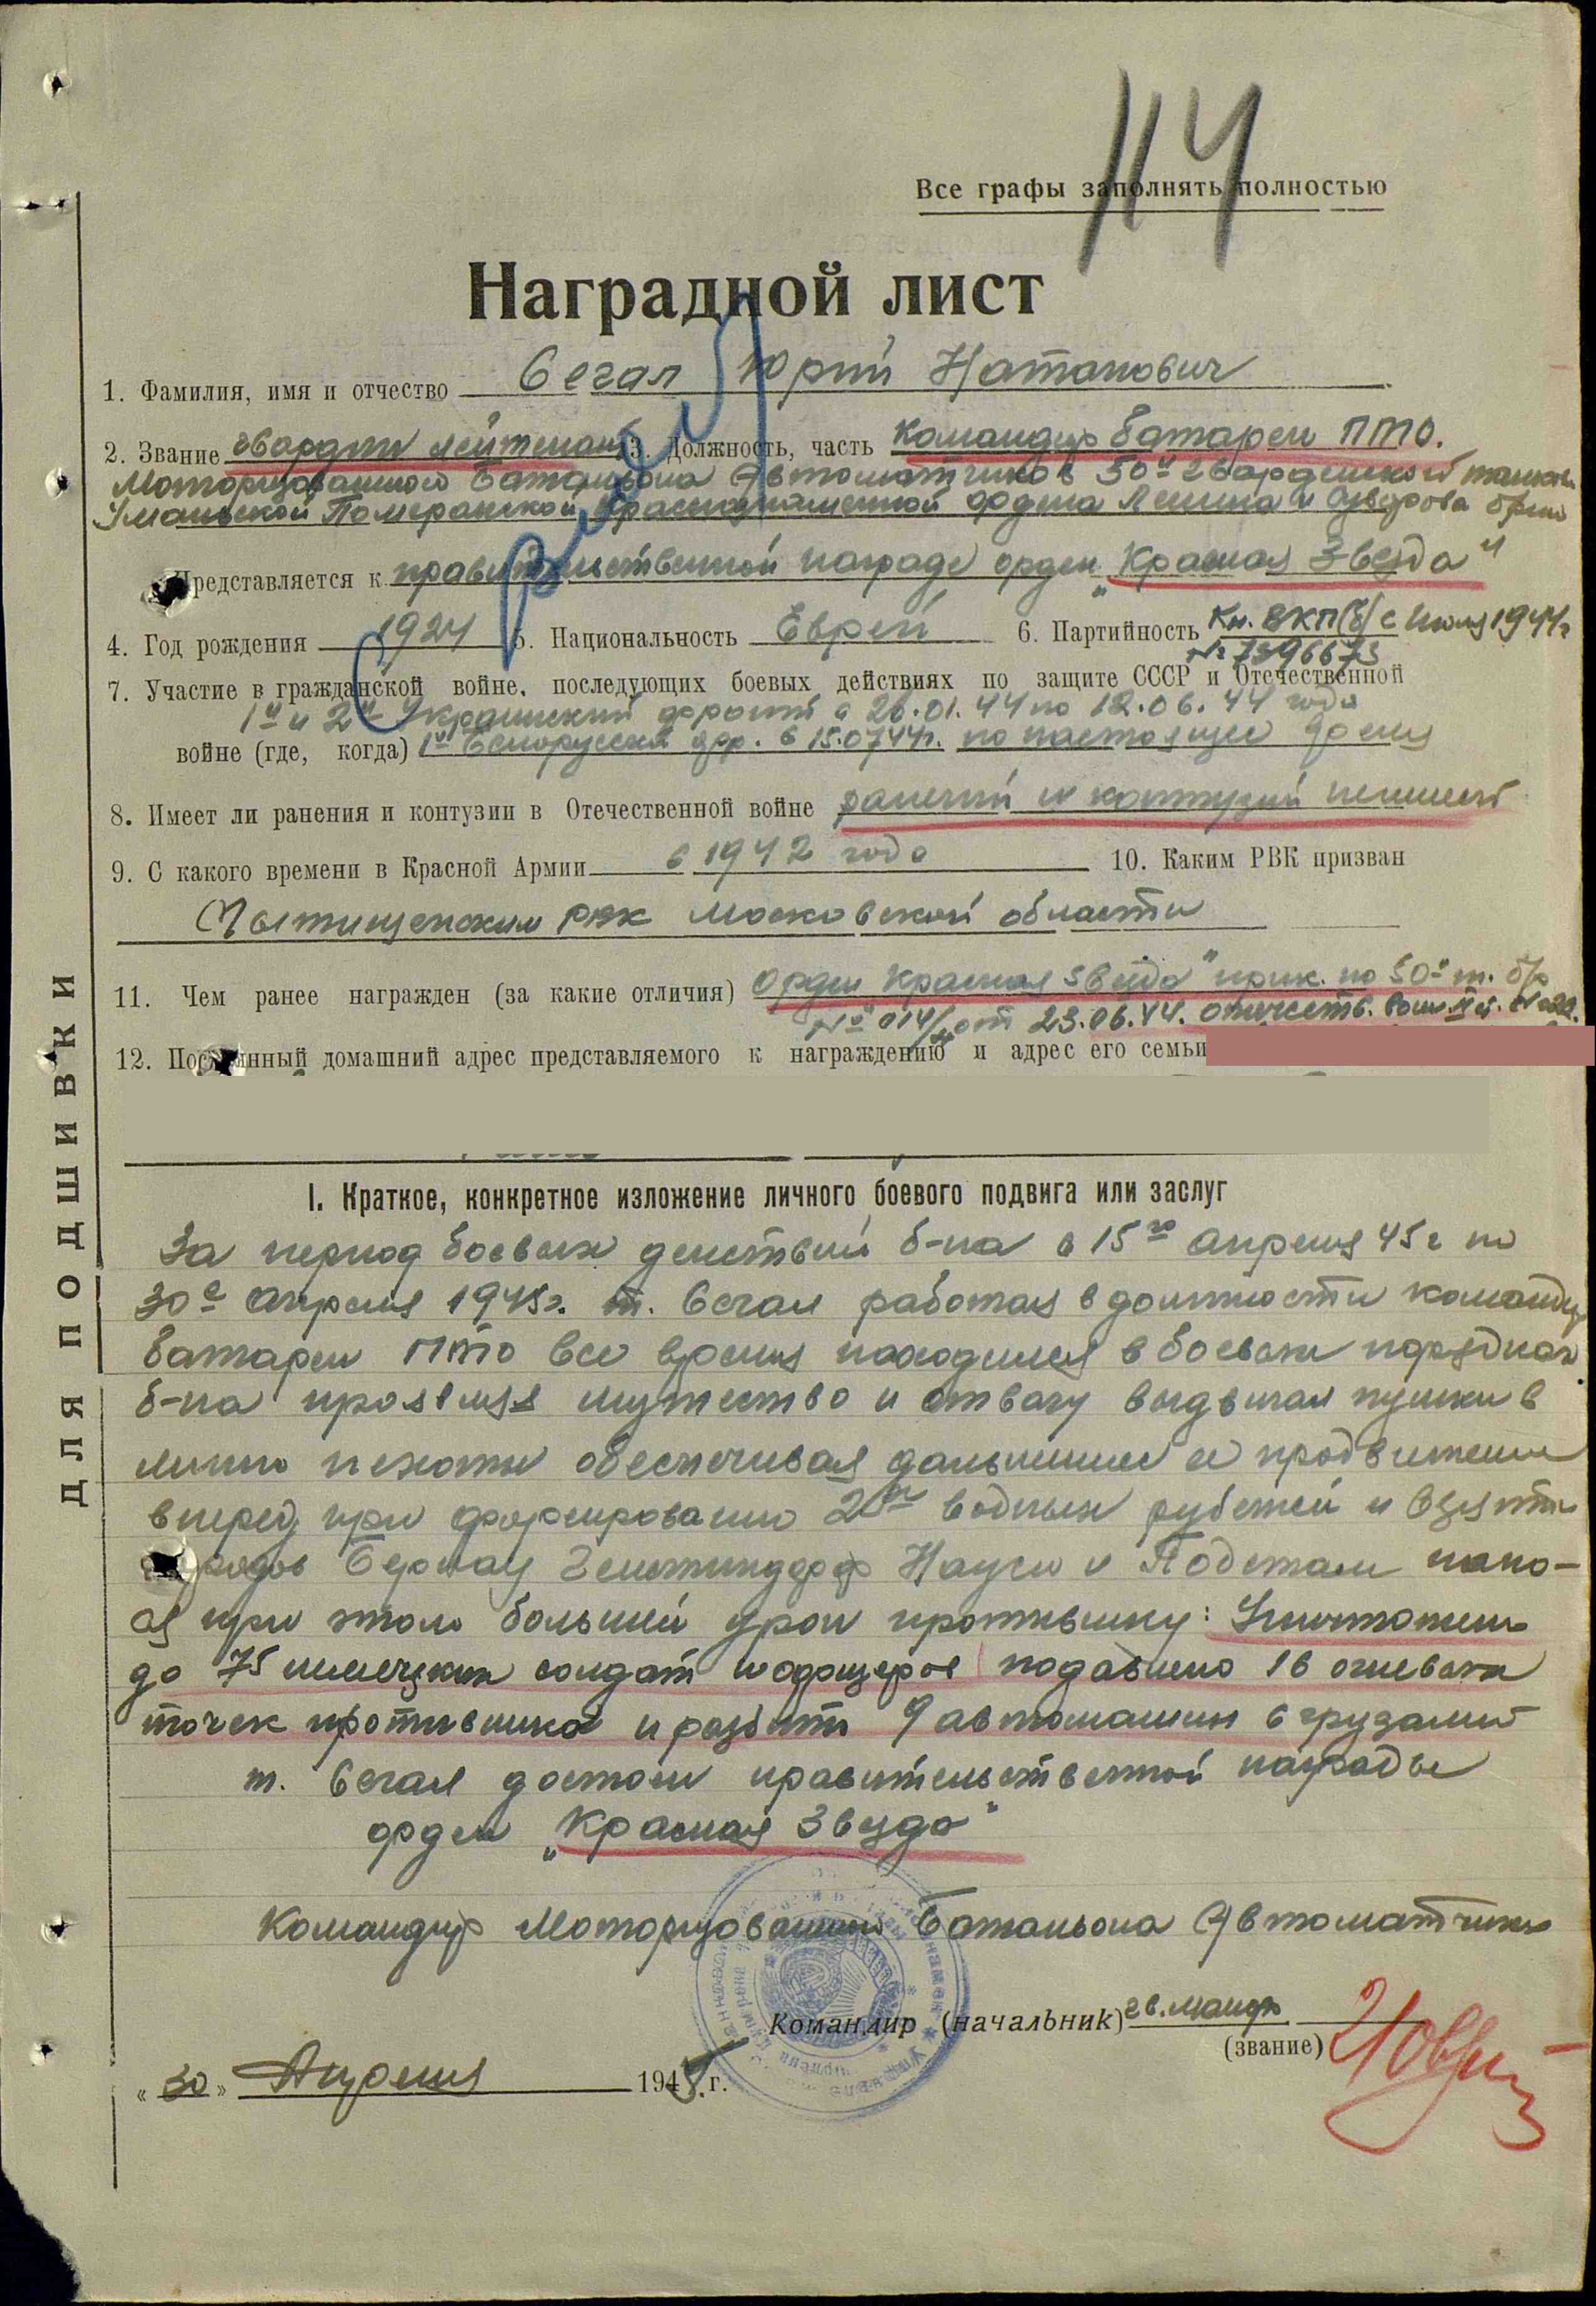 114
Все графы заполнять полностью
Наградной лист
1. Фамилия, имя и отчество Сегал Юрий Натанович
2. Звание гвардии лейтенант 3. Должность, часть Командир батареи ПТО.
Моторизованного Батальона Автоматчиков 50й гвардейской танков
Уманьской Померанской Краснознаменной ордена Ленина и Суворова бриг
Представляется к правительственной награде орден „Красная Звезда"
4. Год рождения 1924 5. Национальность Еврей 6. Партийность Кн. ВКП(б) с Июля 1944г
№ 7396673
7. Участие в гражданской войне, последующих боевых действиях по защите СССР и Отечественной
1й и 2й Украинский фронт с 26.01.44 по 12.06.44 года
войне (где, когда) 1й Белорусский фр. с 15.07.44г. по настоящее время
8. Имеет ли ранения и контузии в Отечественной войне ранений и контузий не имеет
9. С какого времени в Красной Армии с 1942 года 10. Каким РВК призван
Мытищенским РВК Московской области
11. Чем ранее награжден (за какие отличия) Орден „Красная Звезда" прик. по 50й т. бр
№ 014/н от 23.06.44. Отечеств. Войн. II ст.
12. Постоянный домашний адрес представляемого к награждению и адрес его семьи
I. Краткое, конкретное изложение личного боевого подвига или заслуг
За период боевых действий б-на с 15го апреля 45г по
30е апреля 1945г. т. Сегал работая в должности командир
батареи ПТО все время находился в боевых порядках
б-на проявляя мужество и отвагу выдвигал пушки в
линию пехоты обеспечивая дальнишее ее продвижение
вперед при форсировании 2х водных рубежей и взятии
городов Бернау Науен и Подстам нано-
ся при этом большой урон противнику: Уничтожено
до 75 немецких солдат и офицеров подавлено 16 огневых
точек противника и разбито 9 автомашин с грузами
т. Сегал достоин правительственной награды
орден „Красная Звезда"
Командир Моторизованного Батальона Автоматчиков
Командир (начальник) гв. майор
(звание)
«30» Апреля 1945 г.
ДЛЯ ПОДШИВКИ